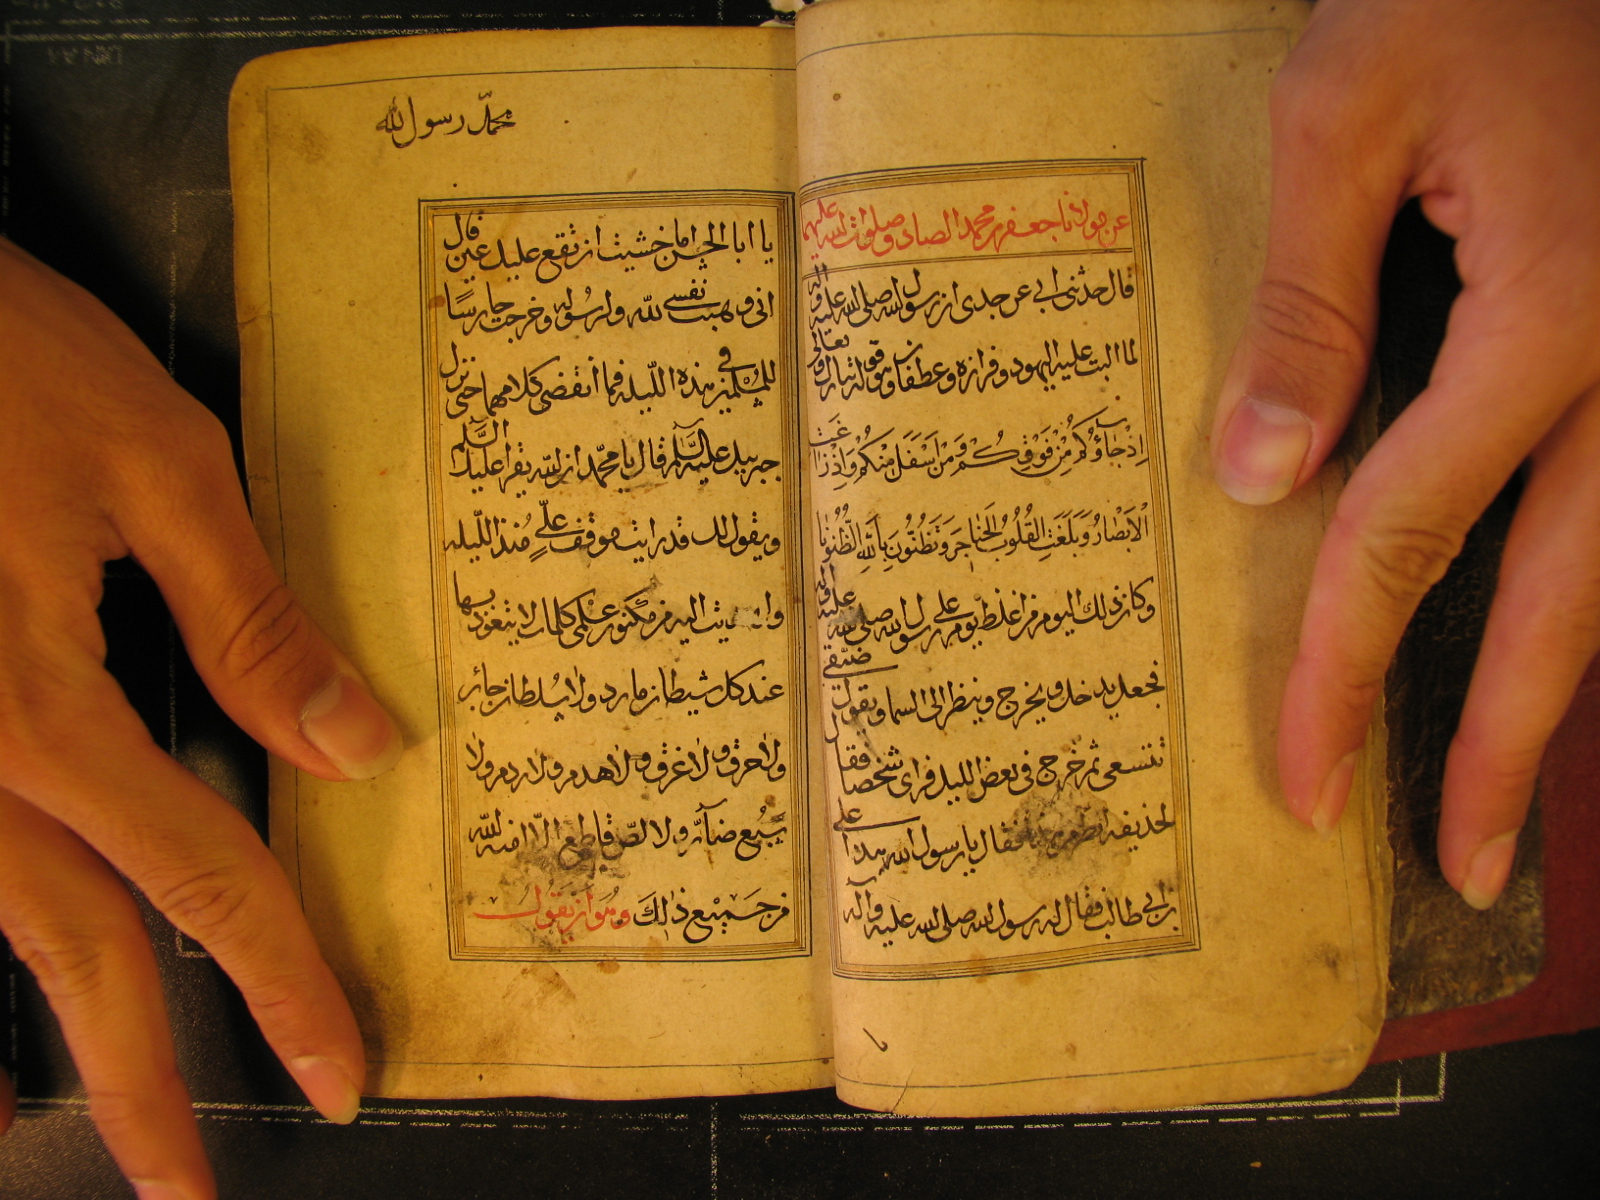 عن مولانا جعفر بن محمد الصادق صلوات الله عليهم
قال حدثنى ابى عن جدى ان رسول الله صلى الله عليه وآله
لما البت عليه اليهود وفزازه وعطفان وهو قوله تبارك وتعالى
اِذْ جَاؤُكُمْ مِنْ فَوْقِكُمْ وَمِنْ اَسْفَلَ مِنْكُمْ وَاِذْ زَاغَتِ
الْاَبْصَارُ وَبَلَغَتِ الْقُلُوبُ الْحَنَاجِرَ وَتَظُنُّونَ بِاللّٰهِ الظُّنُونَا
وكان ذلك اليوم من اغلظ يوم على رسول الله صلى الله عليه وآله
فجعل يدخل ويخرج وينظر الى السما ويقول ضيقى
تتسعى ثم خرج فى بعض الليل فراى شخصا فقال
لحذيفه انظر من فقال يا رسول الله هذا على
بن ابى طالب فقال له رسول الله صلى الله عليه وآله
محمّد رسول الله
يا ابا الحسن اما خشيت ان تقع عليك عين قال
انى وهبت نفسى لله ولرسوله وخرجت حارسًا
للمسلمين فى هذه اللّيله فما انقضى كلامهما حتى نزل
جبرئيل عليه السّلم وقال يا محمّد ان الله يقرا عليك السَّلم
ويقول لك قد رايت موقف علىٍّ مُنذ اللّيله
اليه من مكنون علمى كلمات لا يتعوذ بها
عند كل شيطان مارد ولا سُلطان جائر
ولا حرق ولا غرق ولا هدم ولا ردم ولا
سَبُع ضآرّ ولا لصّ قاطع الّا امنه الله
من جَميْع ذٰلكَ وهُو ان يَقُول